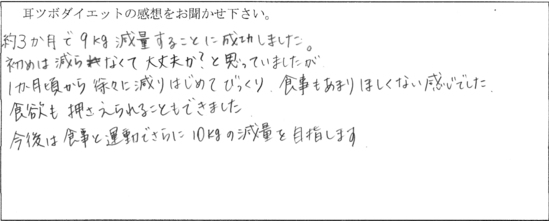 耳ツボダイエットの感想をお聞かせ下さい。
約3か月で9kg減量することに成功しました。
初めは減らなくて大丈夫か?と思っていましたが
1か月頃から徐々に減りはじめてびっくり、食事もあまりほしくない感じでした。
食欲も押さえられることもできました
今後は食事と運動でさらに10kgの減量を目指します